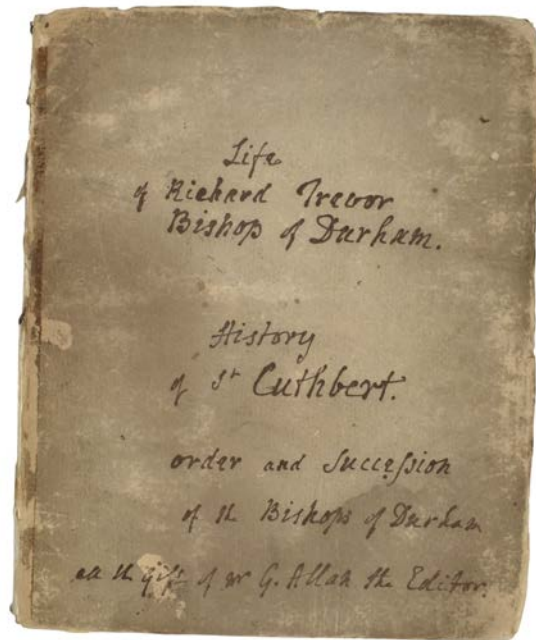 Life
of Richard Trevor
Bishop of Durham.
History
of St Cuthbert.
order and Succeſsion
of the Bishops of Durham
all the Gift of mr G. Allan the Editor.